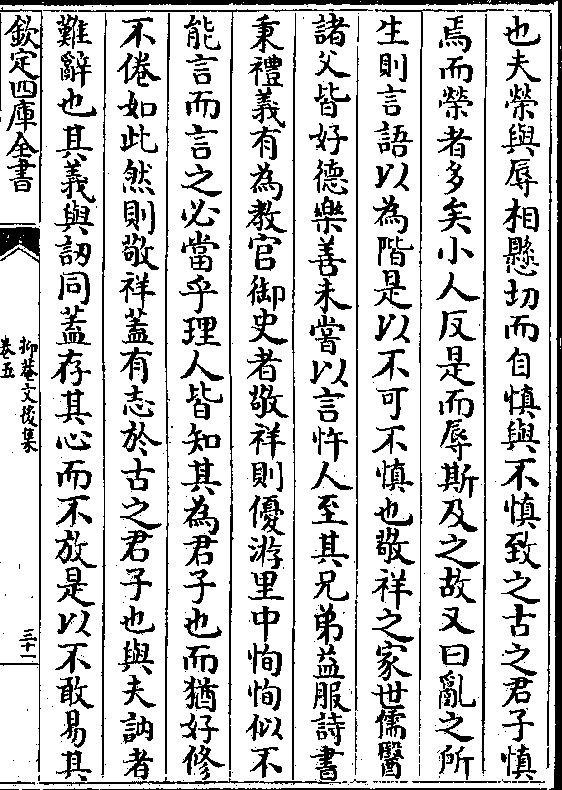 也夫榮與辱相懸切而自慎與不慎致之古之君子慎
焉而榮者多矣小人反是而辱斯及之故又曰亂之所
生則言語以為階是以不可不慎也敬祥之家世儒醫
諸父皆好德樂善未嘗以言忤人至其兄弟益服詩書
秉禮義有為教官御史者敬祥則優游里中恂恂似不
能言而言之必當乎理人皆知其為君子也而猶好修
不倦如此然則敬祥蓋有志於古之君子也與夫訥者
難辭也其義與訒同蓋存其心而不放是以不敢易其
欽定四庫全書
抑菴文後集
卷五
三十一